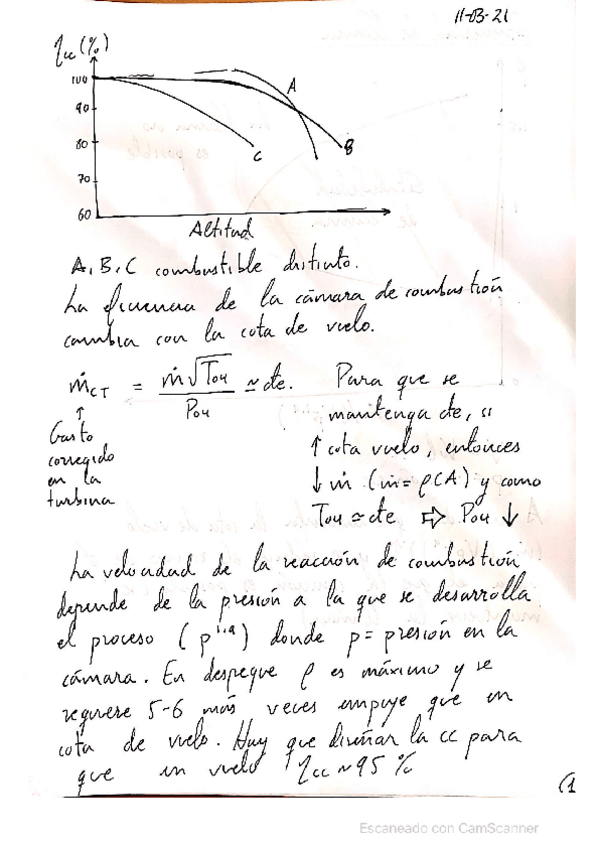 11-03-21
ηcc (%)
100
90
80
70
60
A
B
C
Altitud
A, B, C combustible distinto.
La eficiencia de la cámara de combustión
cambia con la cota de vuelo.
ṁCT = ṁ√To4 / Po4 ≃ cte.
↑
Gasto
corregido
en la
turbina
Para que se
mantenga cte, si
↑ cota vuelo, entonces
↓ ṁ (ṁ = ρCA) y como
To4 ≃ cte ⇨ Po4 ↓
La velocidad de la reacción de combustión
depende de la presión a la que se desarrolla
el proceso (p^1.9) donde p = presión en la
cámara. En despegue ρ es máximo y se
requiere 5-6 más veces empuje que en
cota de vuelo. Hay que diseñar la cc para
que en vuelo ηcc ~ 95 %
(1
Escaneado con CamScanner